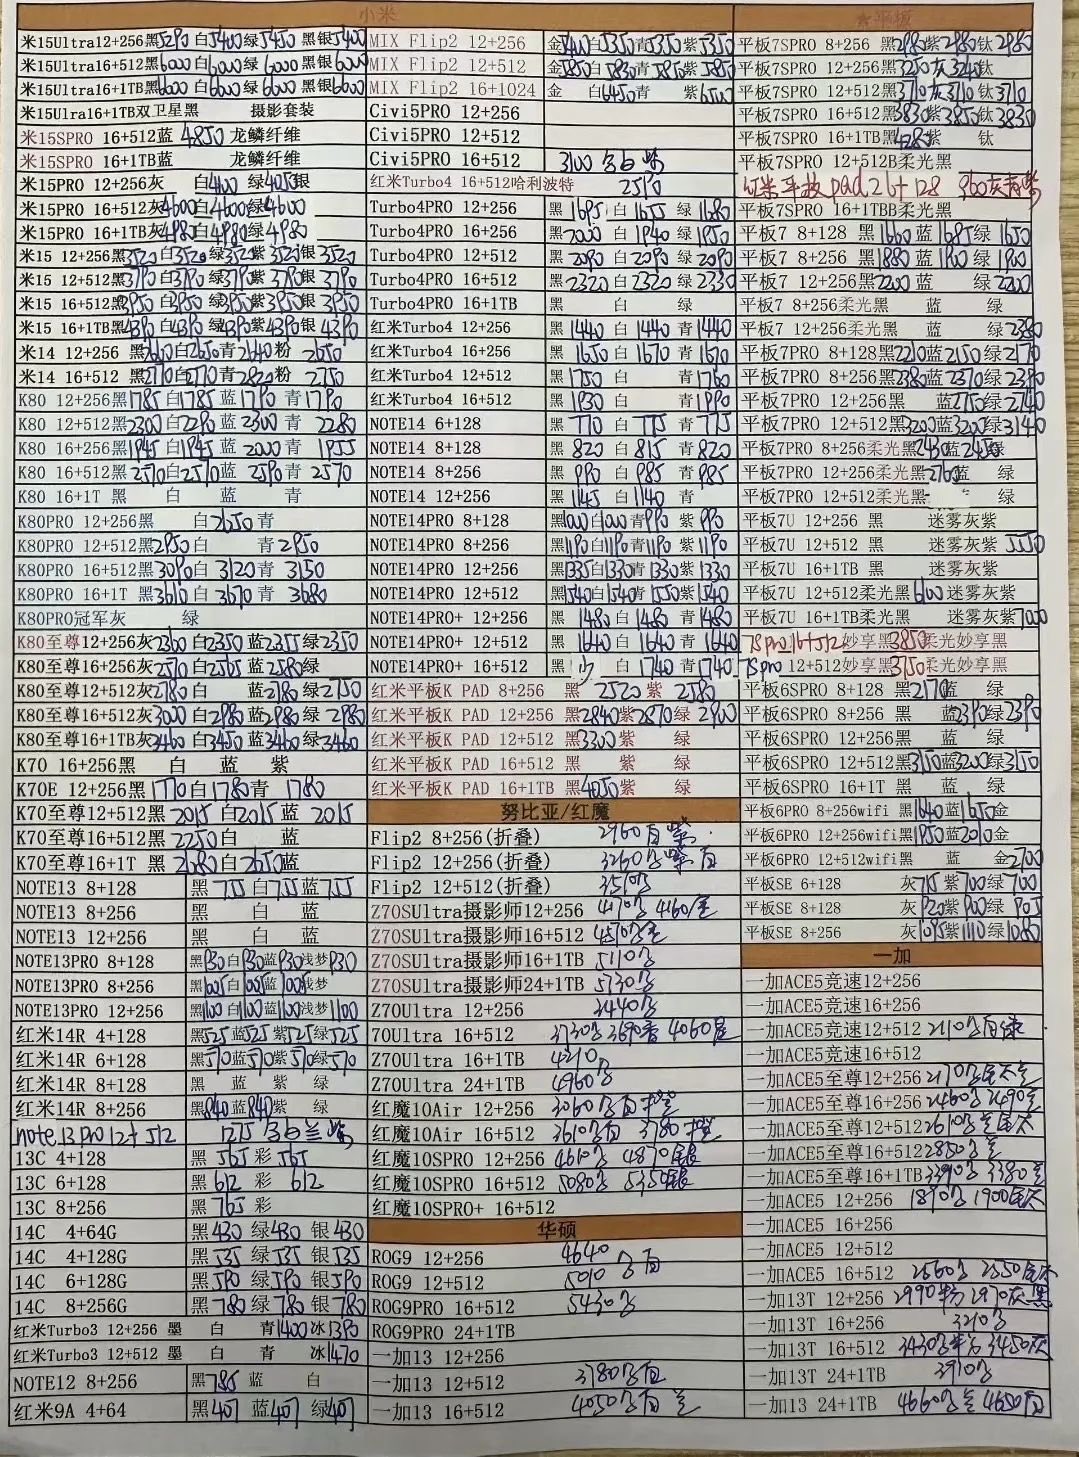 小米
米15Ultra12+256黑5290 白5400绿5450 黑银5400
米15Ultra16+512黑6000白6000绿6000黑银6000
米15Ultra16+1TB黑6600白6600绿6600黑银6600
米15Ulra16+1TB双卫星黑 摄影套装
米15SPRO 16+512蓝 4850 龙鳞纤维
米15SPRO 16+1TB蓝 龙鳞纤维
米15PRO 12+256灰 白4100 绿4050银
米15PRO 16+512灰4600白4600绿4600
米15PRO 16+1TB灰4980白4980绿4980
米15 12+256黑3520白3520绿3520紫3520银3520
米15 12+512黑3790白3790绿3790紫3790银3790
米15 16+512黑3950白3950绿3950紫3950银3950
米15 16+1TB黑4390白4390绿4390紫4390银4390
米14 12+256 黑2600白2650青2640粉 2650
米14 16+512 黑2770白2770青2820粉 2750
K80 12+256黑1785白1785蓝1790青1790
K80 12+512黑2300白2290蓝2300青2280
K80 16+256黑1945白1945蓝2000青1955
K80 16+512黑2570白2570蓝2590青2570
K80 16+1T 黑 白 蓝 青
K80PRO 12+256黑 白2650青
K80PRO 12+512黑2950白 青2950
K80PRO 16+512黑3090白3120青3150
K80PRO 16+1T 黑3610白3670青3680
K80PRO冠军灰 绿
K80至尊12+256灰2360白2350蓝2355绿2350
K80至尊16+256灰2570白2565蓝2580绿
K80至尊12+512灰2780白 蓝2780绿2750
K80至尊16+512灰3000白2980蓝2980绿2980
K80至尊16+1TB灰3460白3450蓝3460绿3460
K70 16+256黑 白 蓝 紫
K70E 12+256黑1770白1780青1780
K70至尊12+512黑2015白2015蓝2015
K70至尊16+512黑2250白 蓝
K70至尊16+1T 黑2680白2650蓝
NOTE13 8+128 黑755白755蓝755
NOTE13 8+256 黑 白 蓝
NOTE13 12+256 黑 白 蓝
NOTE13PRO 8+128 黑930白930蓝930浅梦930
NOTE13PRO 8+256 黑1005白1005蓝1005浅梦
NOTE13PRO 12+256 黑1100白1100蓝1100浅梦1100
红米14R 4+128 黑525蓝525紫525绿525
红米14R 6+128 黑570蓝570紫570绿570
红米14R 8+128 黑 蓝 紫 绿
红米14R 8+256 黑840蓝840紫 绿
note.13pro 12+512
13C 4+128 黑565彩565
13C 6+128 黑612彩612
13C 8+256 黑765彩
14C 4+64G 黑430绿430银430
14C 4+128G 黑535绿535银535
14C 6+128G 黑590绿590银590
14C 8+256G 黑780绿780银780
红米Turbo3 12+256 墨 白 青1400冰1390
红米Turbo3 12+512 墨 白 青 冰1470
NOTE12 8+256 黑785蓝 白
红米9A 4+64 黑407蓝407绿407
MIX Flip2 12+256 金5400白5350青5350紫5350
MIX Flip2 12+512 金5850白5830青5850紫5850
MIX Flip2 16+1024 金 白6450青 紫6500
Civi5PRO 12+256
Civi5PRO 12+512
Civi5PRO 16+512 3100
红米Turbo4 16+512哈利波特 2590
Turbo4PRO 12+256 黑1695白1655绿1680
Turbo4PRO 16+256 黑2000白1940绿1950
Turbo4PRO 12+512 黑2090白2090绿2090
Turbo4PRO 16+512 黑2320白2320绿2330
Turbo4PRO 16+1TB 黑 白 绿
红米Turbo4 12+256 黑1440白1440青1440
红米Turbo4 16+256 黑1650白1670青1670
红米Turbo4 12+512 黑1750白 青1760
红米Turbo4 16+512 黑1930白 青1990
NOTE14 6+128 黑770白775青775
NOTE14 8+128 黑820白815青820
NOTE14 8+256 黑990白985青985
NOTE14 12+256 黑1145白1140青
NOTE14PRO 8+128 黑1000白1000青990紫990
NOTE14PRO 8+256 黑1190白1190青1190紫1190
NOTE14PRO 12+256 黑1335白1330青1330紫1330
NOTE14PRO 12+512 黑1540白1540青1550紫1540
NOTE14PRO+ 12+256 黑1480白1480青1480
NOTE14PRO+ 12+512 黑1640白1640青1640
NOTE14PRO+ 16+512 黑 白1740青1740
红米平板K PAD 8+256 黑2520紫2580
红米平板K PAD 12+256 黑2840紫2870绿2900
红米平板K PAD 12+512 黑3300紫 绿
红米平板K PAD 16+512 黑 紫 绿
红米平板K PAD 16+1TB 黑4050紫 绿
努比亚/红魔
Flip2 8+256(折叠) 2960
Flip2 12+256(折叠) 3260
Flip2 12+512(折叠) 3510
Z70SUltra摄影师12+256 4170 4160
Z70SUltra摄影师16+512 4570
Z70SUltra摄影师16+1TB 5110
Z70SUltra摄影师24+1TB 5730
Z70Ultra 12+256 3440
70Ultra 16+512 3730 3690 4060
Z70Ultra 16+1TB 4210
Z70Ultra 24+1TB 4960
红魔10Air 12+256 3060
红魔10Air 16+512 3610 3780
红魔10SPRO 12+256 4610 4870银
红魔10SPRO 16+512 5080 5350银
红魔10SPRO+ 16+512
华硕
ROG9 12+256 4640
ROG9 12+512 5010
ROG9PRO 16+512 5430
ROG9PRO 24+1TB
一加13 12+256
一加13 12+512 3780
一加13 16+512 4050
★平板
平板7SPRO 8+256 黑2980紫2980钛2980
平板7SPRO 12+256黑3250灰3240钛
平板7SPRO 12+512黑3710灰3710钛3710
平板7SPRO 16+512黑3830紫3850钛3830
平板7SPRO 16+1TB黑4280紫 钛
平板7SPRO 12+512B柔光黑
红米平板pad2 6+128 960灰青紫
平板7SPRO 16+1TBB柔光黑
平板7 8+128 黑1660蓝1685绿1650
平板7 8+256 黑1880蓝1900绿1900
平板7 12+256黑2200蓝 绿2200
平板7 8+256柔光黑 蓝 绿
平板7 12+256柔光黑 蓝 绿2380
平板7PRO 8+128黑2210蓝2150绿2170
平板7PRO 8+256黑2380蓝2370绿2390
平板7PRO 12+256黑 蓝2750绿2740
平板7PRO 12+512黑3200蓝3205绿3140
平板7PRO 8+256柔光黑2430蓝2450绿
平板7PRO 12+256柔光黑2765蓝 绿
平板7PRO 12+512柔光黑 绿
平板7U 12+256 黑 迷雾灰紫
平板7U 12+512 黑 迷雾灰紫5550
平板7U 16+1TB 黑 迷雾灰紫
平板7U 12+512柔光黑6100迷雾灰紫
平板7U 16+1TB柔光黑 迷雾灰紫7000
7Spro 16+512妙享黑3850柔光妙享黑
7Spro 12+512妙享黑3750柔光妙享黑
平板6SPRO 8+128 黑2170蓝 绿
平板6SPRO 8+256 黑 蓝2390绿2390
平板6SPRO 12+256黑 蓝 绿
平板6SPRO 12+512黑3150蓝3200绿3150
平板6SPRO 16+1T 黑 蓝 绿
平板6PRO 8+256wifi 黑1640蓝1650金
平板6PRO 12+256wifi黑1950蓝2010金
平板6PRO 12+512wifi黑 蓝 金2700
平板SE 6+128 灰715紫700绿700
平板SE 8+128 灰920紫900绿905
平板SE 8+256 灰1095紫1110绿1080
一加
一加ACE5竞速12+256
一加ACE5竞速16+256
一加ACE5竞速12+512 2110
一加ACE5竞速16+512
一加ACE5至尊12+256 2170
一加ACE5至尊16+256 2460 2490
一加ACE5至尊12+512 2610
一加ACE5至尊16+512 2850
一加ACE5至尊16+1TB 3390 3380
一加ACE5 12+256 1890 1900
一加ACE5 16+256
一加ACE5 12+512
一加ACE5 16+512 2560 2550
一加13T 12+256 2990 2970灰黑
一加13T 16+256 3210
一加13T 16+512 3430 3450灰
一加13T 24+1TB 3910
一加13 24+1TB 4660 4650